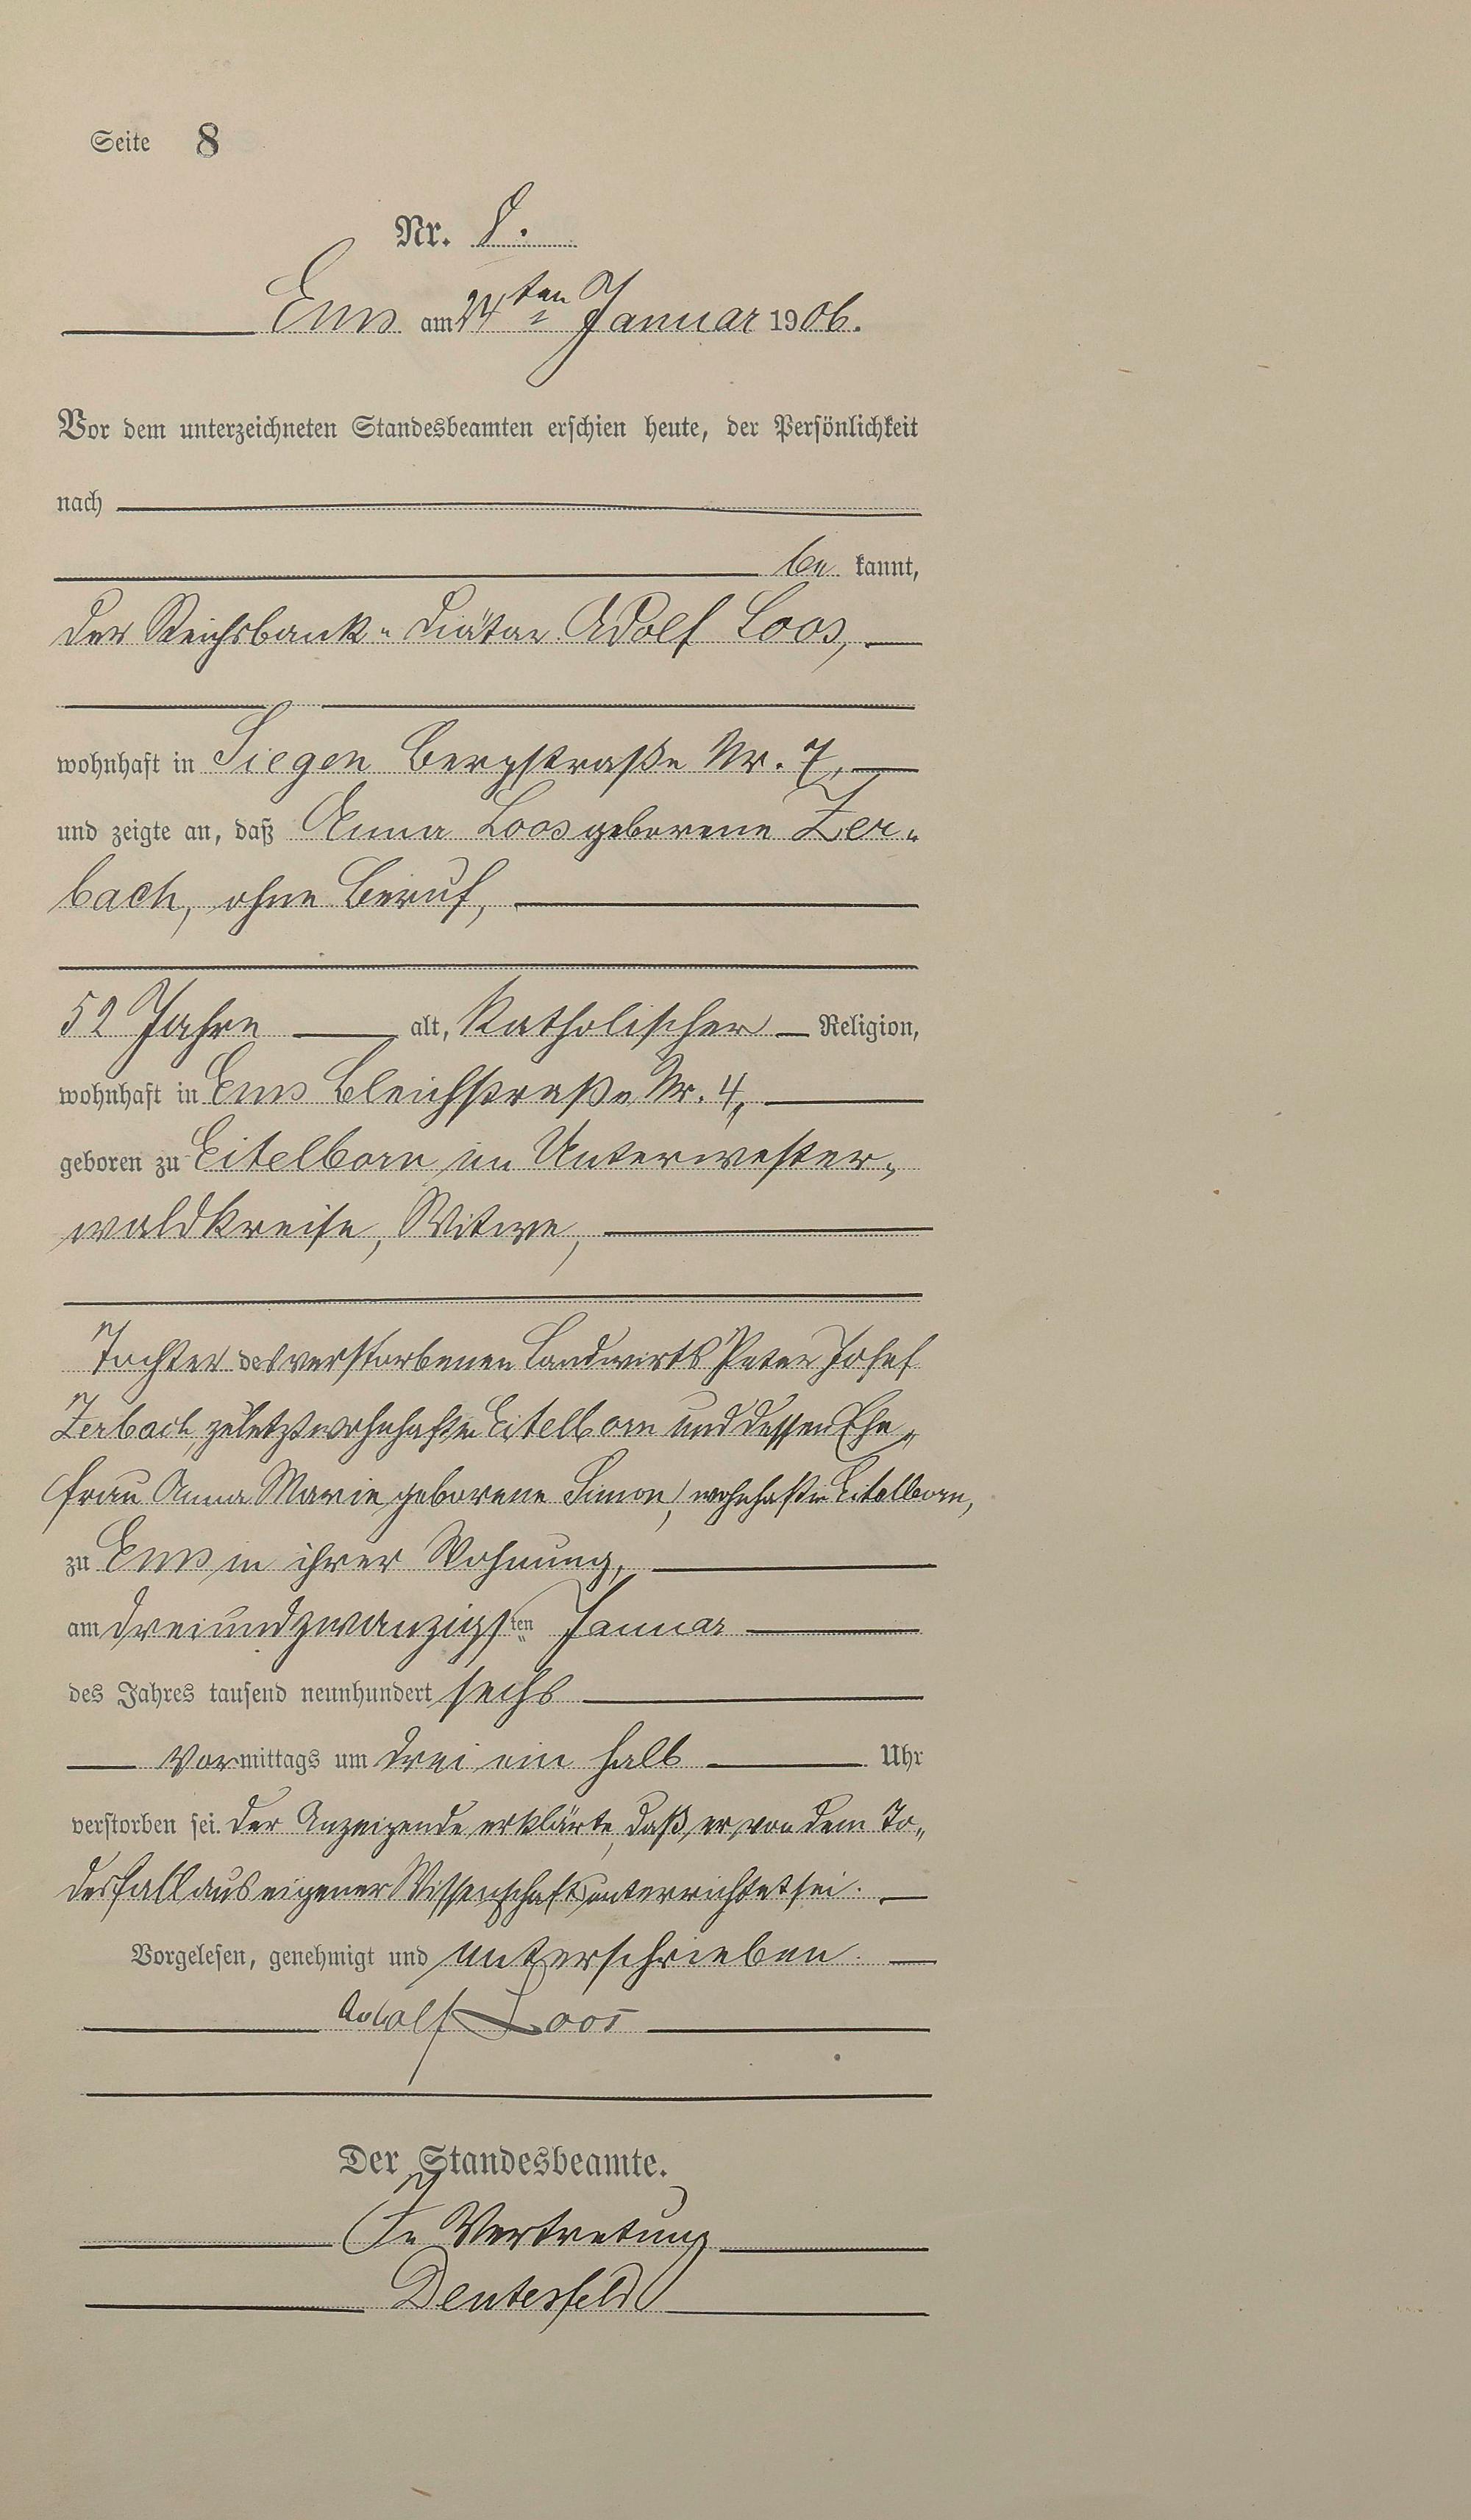 Seite 8
Nr. 8.
Ems am 24ten Januar 1906.
Vor dem unterzeichneten Standesbeamten erschien heute, der Persönlichkeit
nach
be kannt,
der Reichsbank-Diätar Adolf Loos,
wohnhaft in Siegen Bergstraße Nr. 7,
und zeigte an, daß Anna Loos geborene Zer-
bach, ohne Beruf,
52 Jahre alt, katholischer Religion,
wohnhaft in Ems Bleichstraße Nr. 4,
geboren zu Eitelborn im Unterwester-
waldkreise, Witwe,
Tochter des verstorbenen Landwirts Peter Josef
Zerbach, zuletzt wohnhaft in Eitelborn und dessen Ehe-
frau Anna Marie geborene Simon, wohnhaft in Eitelborn,
zu Ems in ihrer Wohnung,
am dreiundzwanzigsten Januar
des Jahres tausend neunhundert sechs
Vormittags um drei ein halb Uhr
verstorben sei. Der Anzeigende erklärte, daß er von dem To-
desfall aus eigener Wissenschaft unterrichtet sei.
Vorgelesen, genehmigt und unterschrieben.
Adolf Loos
Der Standesbeamte.
In Vertretung
Deutesfeld